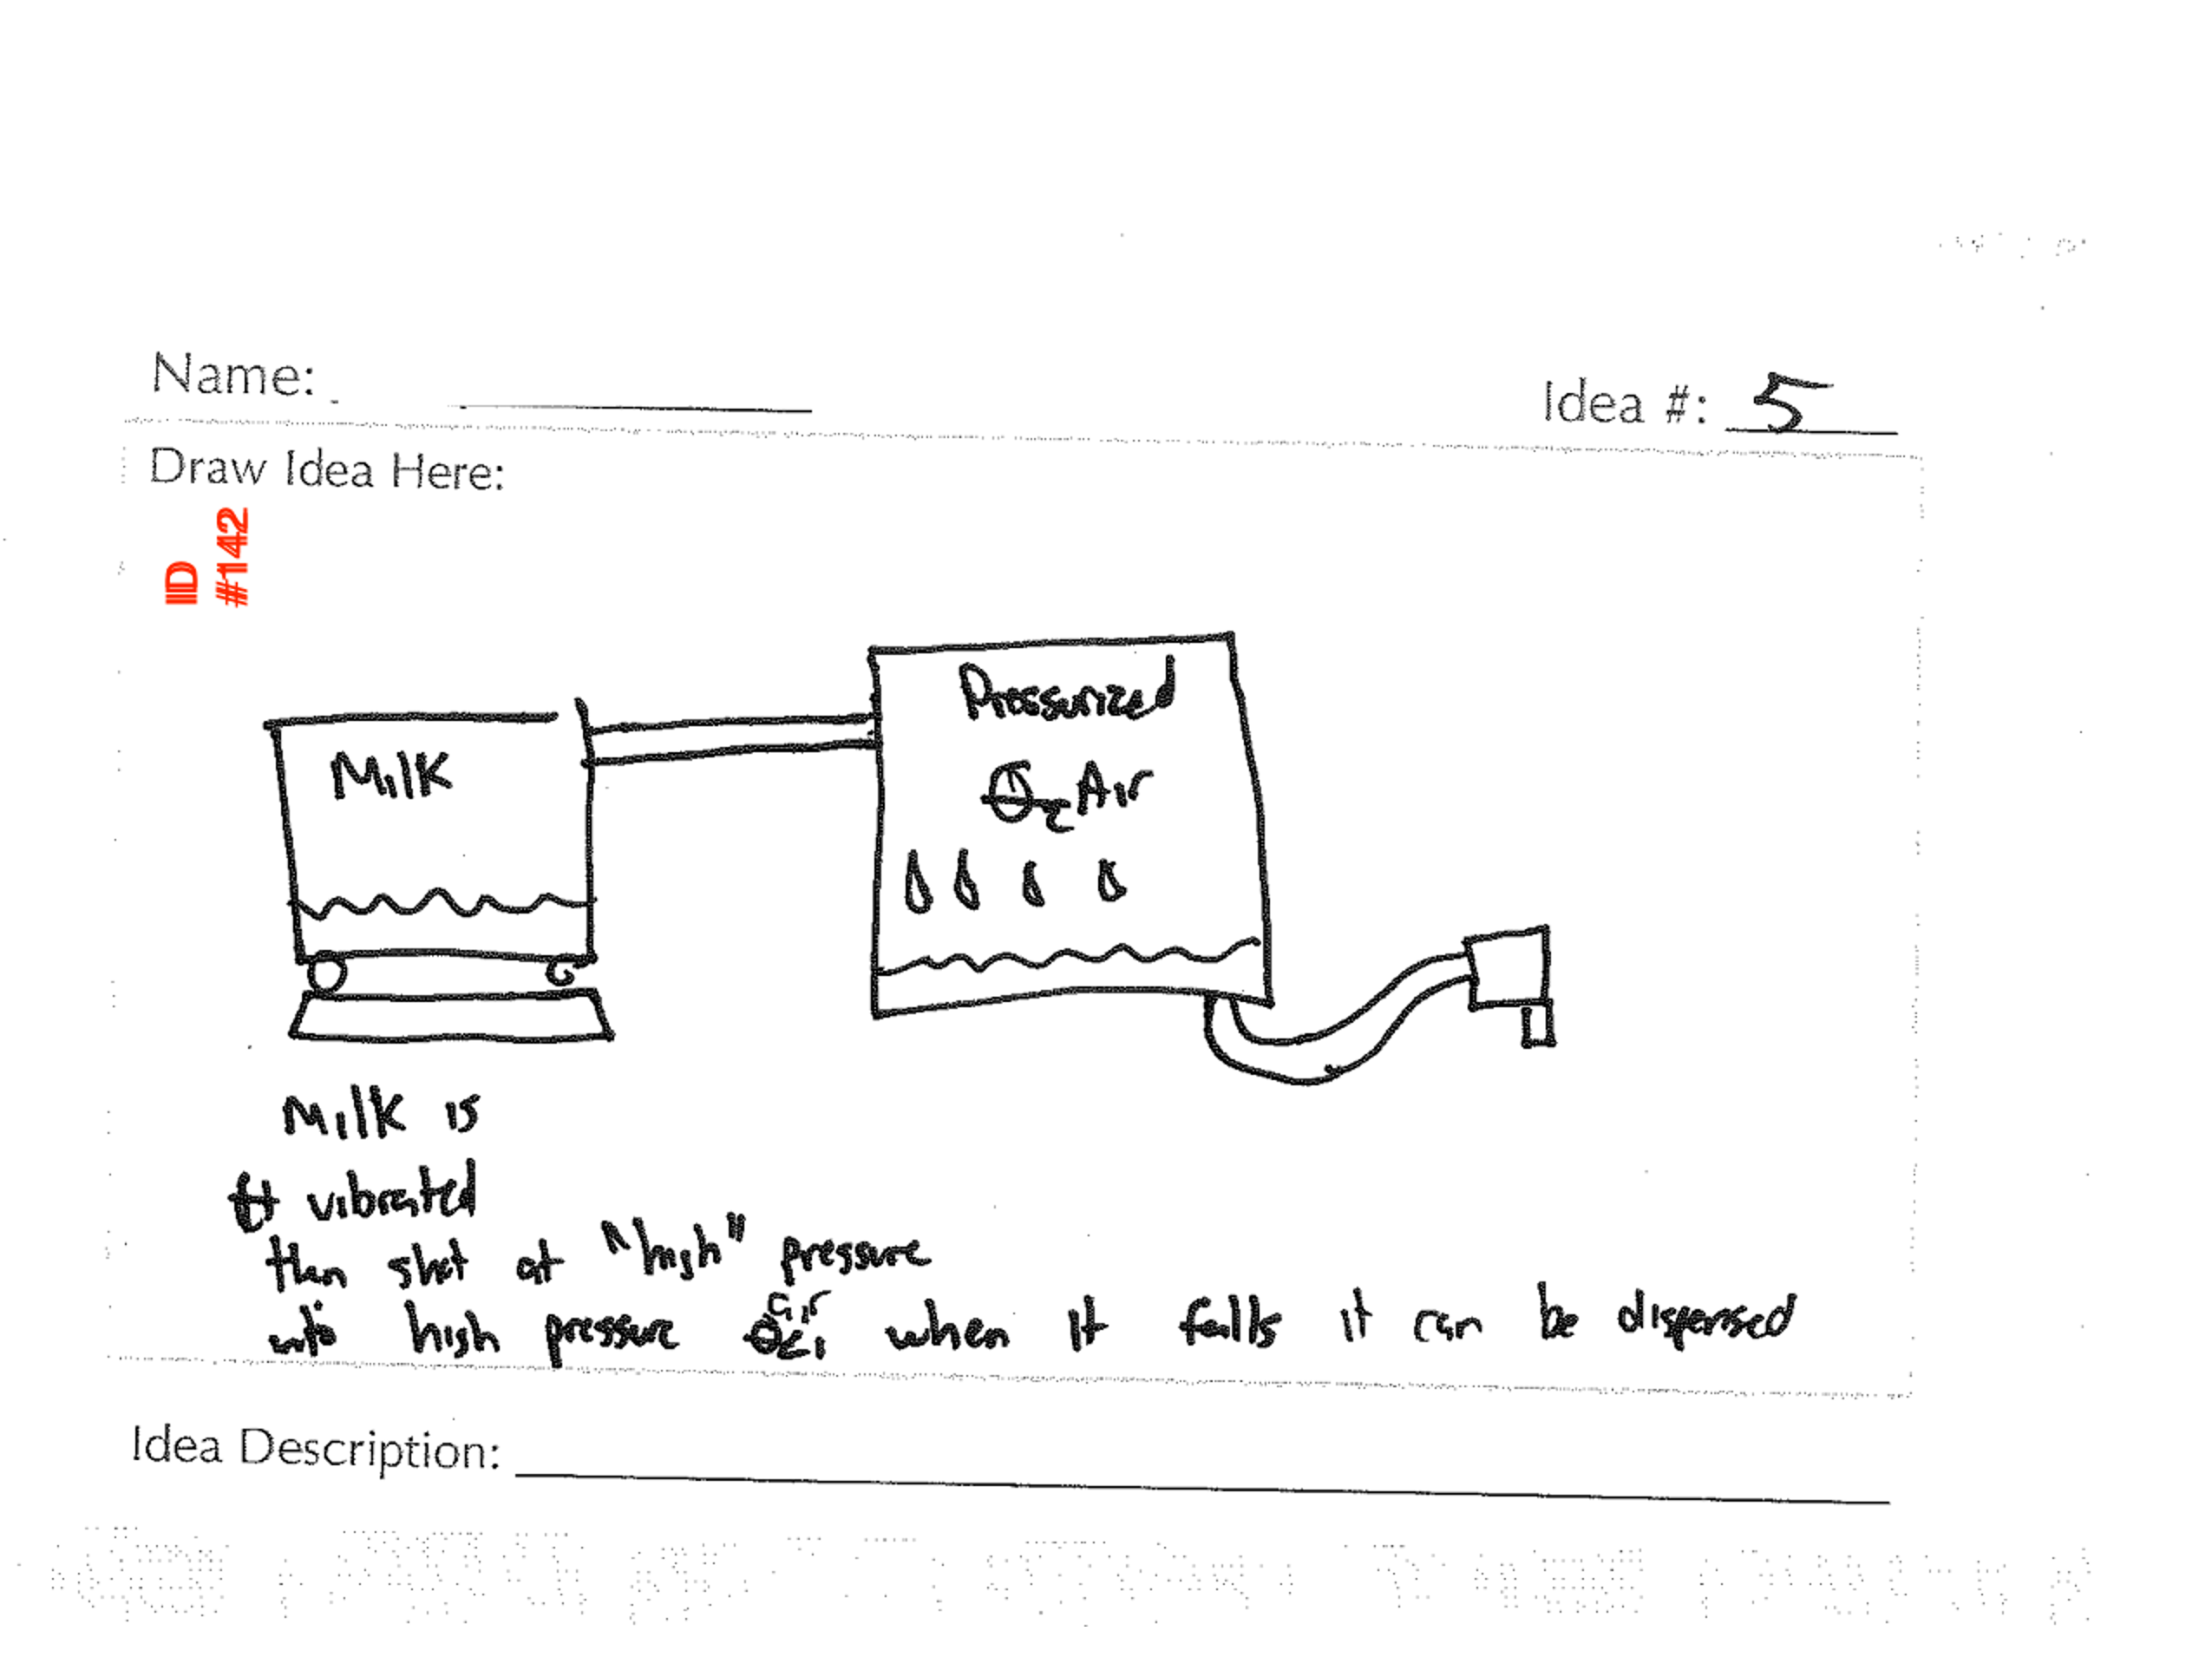 Name:
Idea #: 5
Draw Idea Here:
ID
#142
Pressurized
Milk
Air
Milk is
vibrated
then shot at "high" pressure
into high pressure air when it falls it can be dispersed
Idea Description: